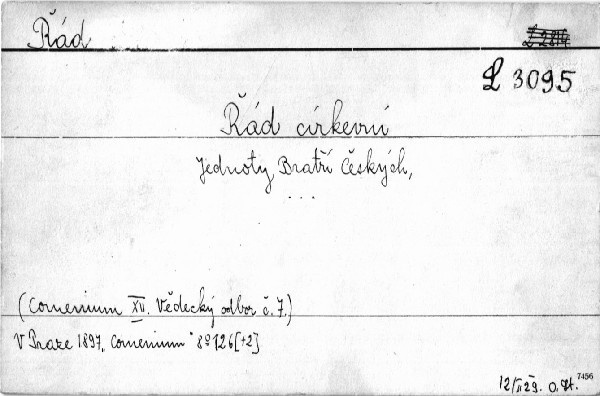 Řád
L 3095
Řád církevní
Jednoty Bratří Českých,
...
(Comenium XV. Vědecký odbor č. 7.)
V Praze 1897, Comenium 8° 126 [+2]
7456
12/II 29.